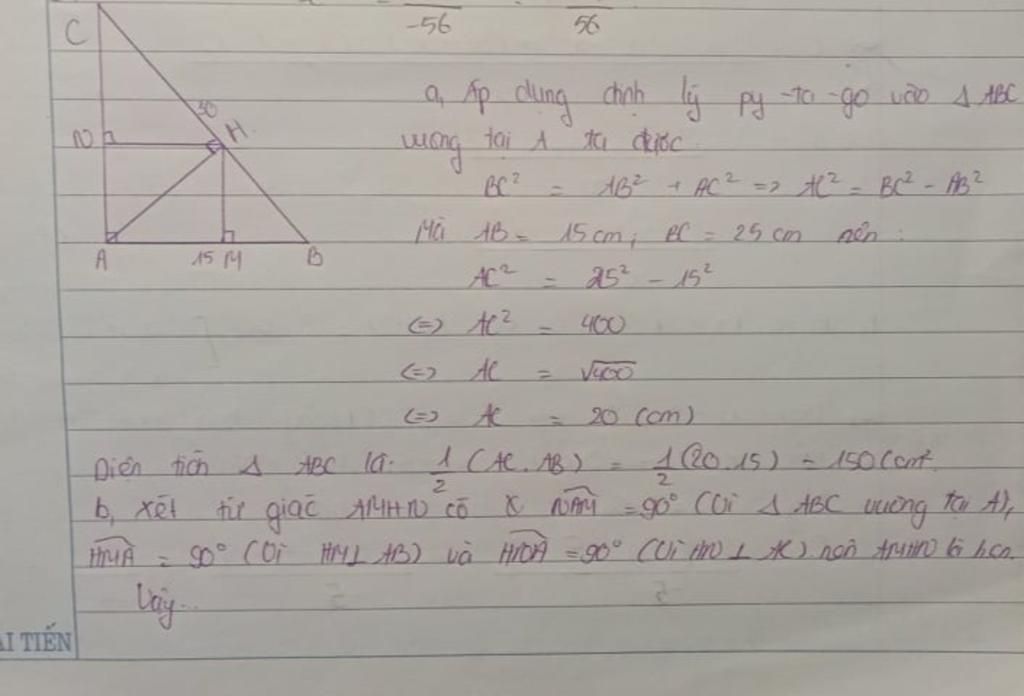 -56 56
C
30
N H
A 15 M B
a, Áp dụng định lý py-ta-go vào Δ ABC
vuông tại A ta được
BC² = AB² + AC² => AC² = BC² - AB²
Mà AB = 15 cm; BC = 25 cm nên:
AC² = 25² - 15²
<=> AC² = 400
<=> AC = √400
<=> AC = 20 (cm)
Diện tích Δ ABC là: 1/2 (AC.AB) = 1/2 (20.15) = 150 (cm²
b, xét tứ giác AMHN có NAM = 90° (Vì Δ ABC vuông tại A),
HMA = 90° (Vì HM⊥ AB) và HNA = 90° (Vì HN ⊥ AC) nên AMHN là hcn.
Vậy...
ẢI TIẾN